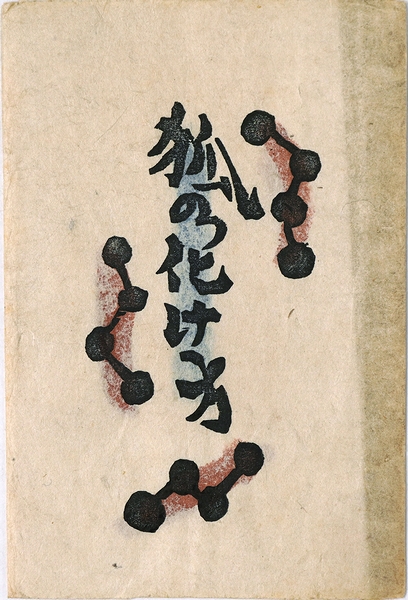 狐の化け方